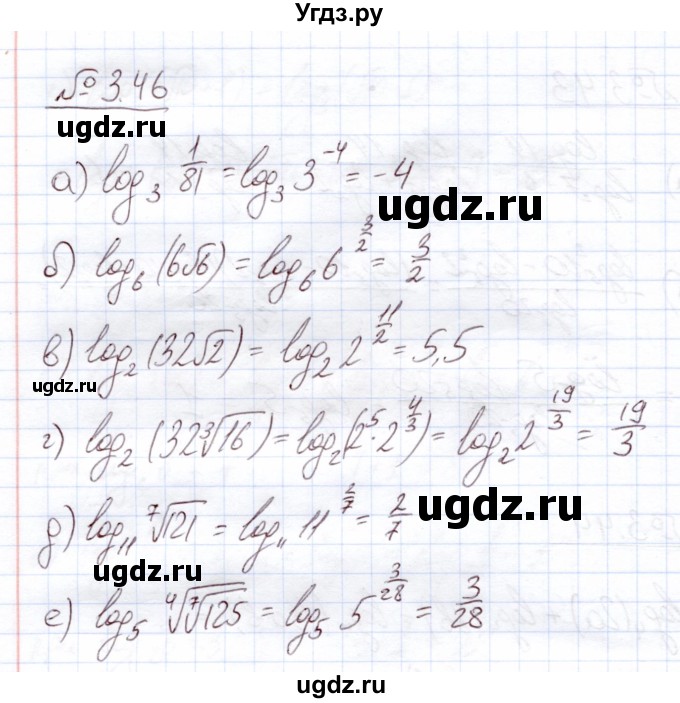 Угдз.ру
№ 3.46
ugdz.ru
а) log₃ 1/81 = log₃ 3⁻⁴ = -4
ugdz.ru
б) log₆ (6√6) = log₆ 6^(3/2) = 3/2
в) log₂ (32√2) = log₂ 2^(11/2) = 5,5
ugdz.ru
г) log₂ (32∛16) = log₂ (2⁵ · 2^(4/3)) = log₂ 2^(19/3) = 19/3
д) log₁₁ ⁷√121 = log₁₁ 11^(2/7) = 2/7
ugdz.ru
ugdz.ru
е) log₅ ⁴√(⁷√125) = log₅ 5^(3/28) = 3/28
ugdz.ru
ugdz.ru